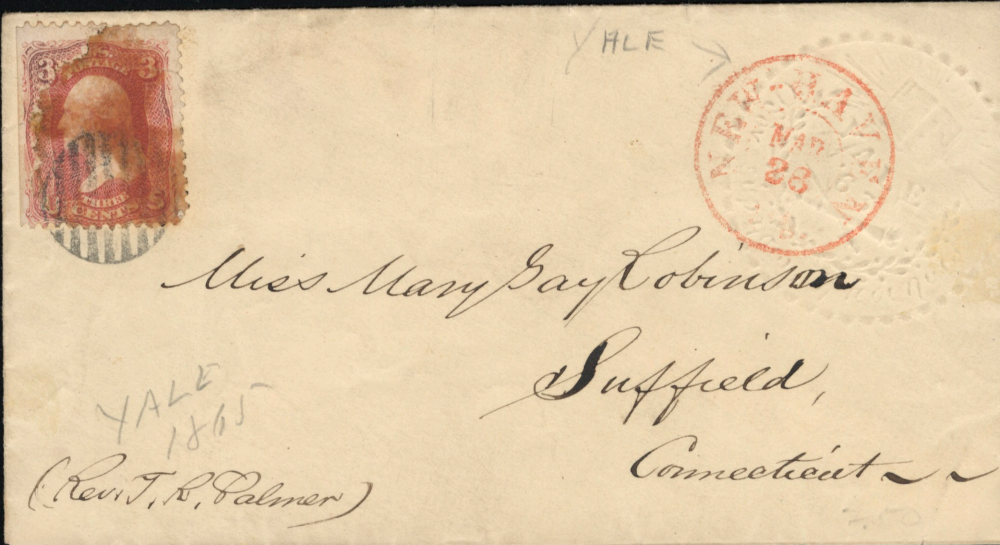 YALE
3 3
U.S.
POSTAGE
THREE
CENTS
NEW-HAVEN
MAR
28
Miss Mary Gay Robinson
Suffield,
Connecticut
YALE
1865
(Rev. T. R. Palmer)